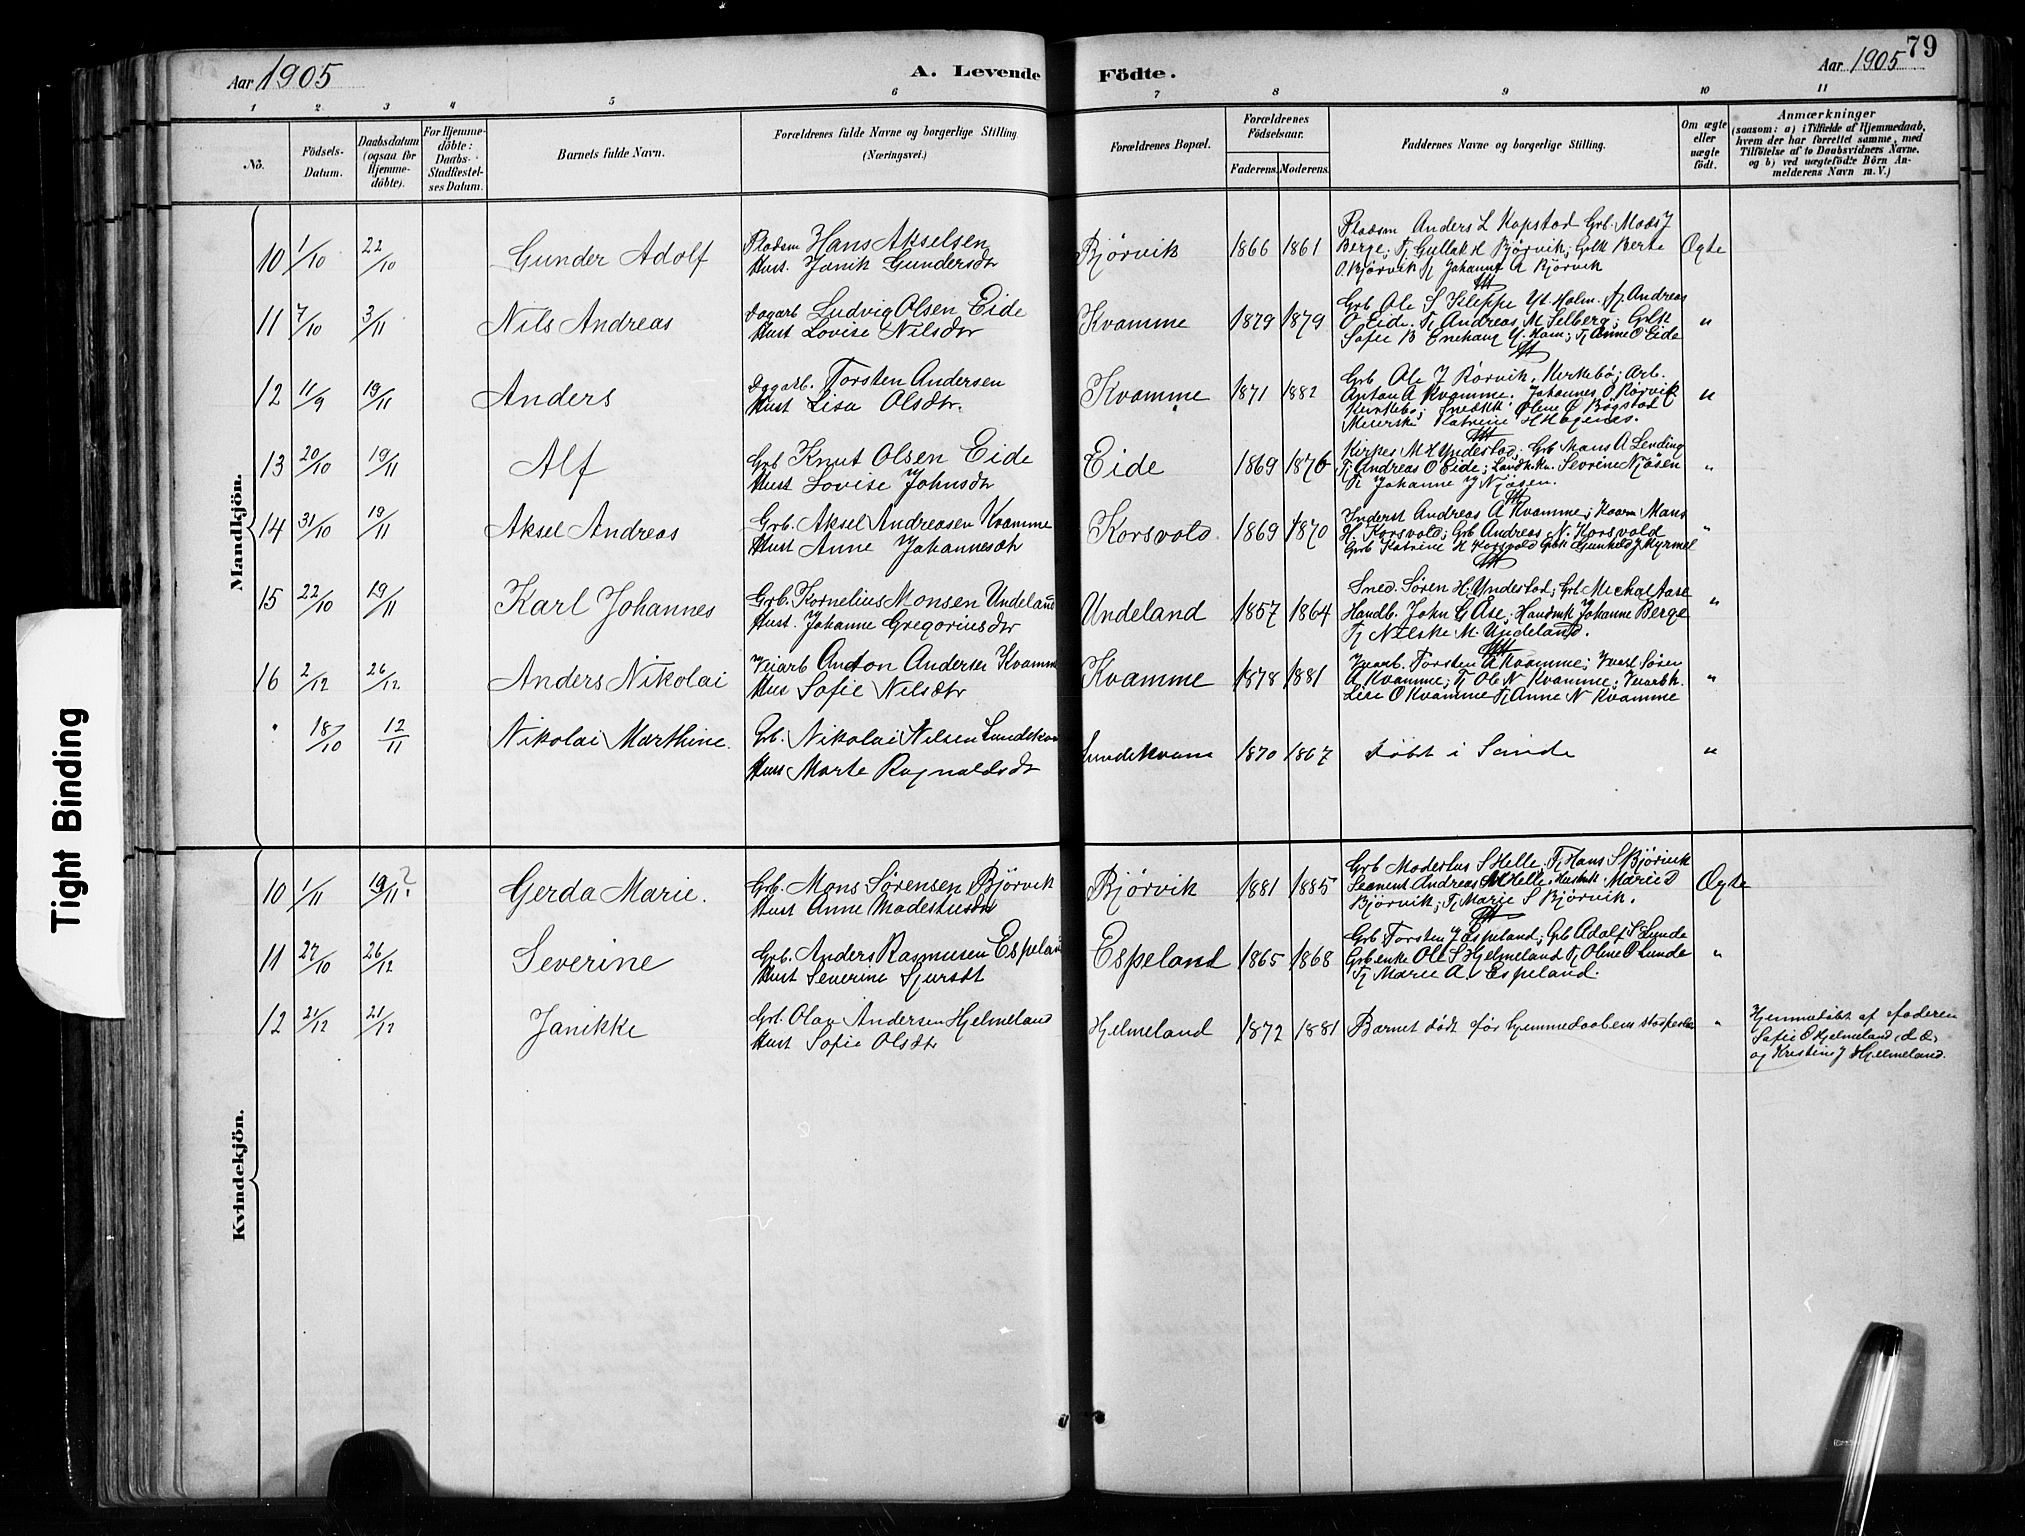 79
Aar 1905
A. Levende Födte.
Aar 1905
1 2 3 4 5 6 7 8 9 10 11
No.
Födsels-Datum.
Daabsdatum (ogsaa for Hjemmedöbte).
For Hjemmedöbte: Daabs-Stadfæstelses Datum.
Barnets fulde Navn.
Forældrenes fulde Navne og borgerlige Stilling. (Næringsvei.)
Forældrenes Bopæl.
Forældrenes Födselsaar.
Faderens. Moderens.
Faddernes Navne og borgerlige Stilling.
Om ægte eller uægte födt.
Anmærkninger
(saasom: a) i Tilfælde af Hjemmedaab, hvem der har forrettet samme, med Tilföielse af to Daabsvidners Navne, og b) ved uægtefödte Börn Anmelderens Navn m. V.)
Mandkjön.
10 1/10 22/10 Gunder Adolf
Pladsm Hans Akselsen
Hust. Janik Gundersdtr
Bjørvik 1866 1861
Pladsm Anders L Kopstad Grb. Mads J
Berge; Tj Gullak H Bjørvik; Grbk Berte
O. Bjørvik Tj Johanne A Bjørvik
Ægte
11 7/10 3/11 Nils Andreas
Dagarb Ludvig Olsen Eide
Hust Lovise Nilsdtr
Kvamme 1879 1879
Grb Ole S Kleppe Yt. Holm. Tj. Andreas
O Eide. Tj Andreas M Selberg; Grbk
Sofie B Y. Tj Anne O Eide
"
12 11/9 19/11 Anders
Dagarb. Torsten Andersen
Hust Lisa Olsdtr.
Kvamme 1871 1882
Grb Ole J Rørvik, Kirkebø; Arb.
Anton A Kvamme. Johannes O. Rørvik
Kirkebø; Snedkk Oline O Bøgstad
Katrine
"
13 20/10 19/11 Alf
Grb Knut Olsen Eide
Hust Lovise Johnsdtr
Eide 1869 1876
M H Yndestad; Grb Mons A Lending
Tj Andreas O Eide; Severine Njøsen
Tj Johanne J Njøsen.
"
14 31/10 19/11 Aksel Andreas
Grb. Aksel Andreasen Kvamme
Hust Anne Johannesdtr
Korsvold. 1869 1870
Inderst Andreas A Kvamme; Mans
H. Korsvold; Grb Andreas N. Korsvold
Katrine H Korsvold Gunhild J Myrmel
"
15 22/10 19/11 Karl Johannes
Grb. Kornelius Monsen Undeland
Hust. Johanne Gregoriusdtr
Undeland 1857 1864
Sned. Søren H. Yndestad; Grb Michal Aase
Handb. John G Åse; Johanne Berge
Tj Nilske M. Undeland.
"
16 2/12 26/12 Anders Nikolai
Veiarb Anton Andersen Kvamme
Hus Sofie Nilsdtr
Kvamme 1878 1881
Torsten A Kvamme; Søren
A Kvamme; Tj Ole N Kvamme. Veiarbk.
O Kvamme Tj Anne N Kvamme
"
" 18/10 12/11 Nikolai Marthine.
Grb. Nikolai Nilsen Sundekvam
Hust Marte Ragnaldsdtr
Sundekvam 1870 1867
Døbt i Sande
"
Kvindekjön.
10 1/11 19/11? Gerda Marie.
Grb. Mons Sørensen Bjørvik
Hust Anne Modestusdtr
Bjørvik 1881 1885
Grb Modestus S Helle. Tj Hans S Bjørvik
Andreas M Helle; Marie S
Bjørvik; Tj Marie S Bjørvik.
Ægte
11 27/10 26/12 Severine
Grb. Anders Rasmusen Espeland
Hust Severine Sjursdt
Espeland 1865 1868
Grb. Torsten J Espeland; Grb Adolf S Lunde
Grbenke Ole S Hjelmeland Tj Oline O Lunde
Tj Marie A. Espeland.
"
12 21/12 21/12 Janikke
Grb. Olav Andersen Hjelmeland
Hust Sofie Olsdtr
Hjelmeland 1872 1881
Barnet dødt før hjemmedaabens stadfestelse
"
Hjemmedøbt af faderen
Sofie O Hjelmeland
og Kristine J Hjelmeland.
Tight Binding